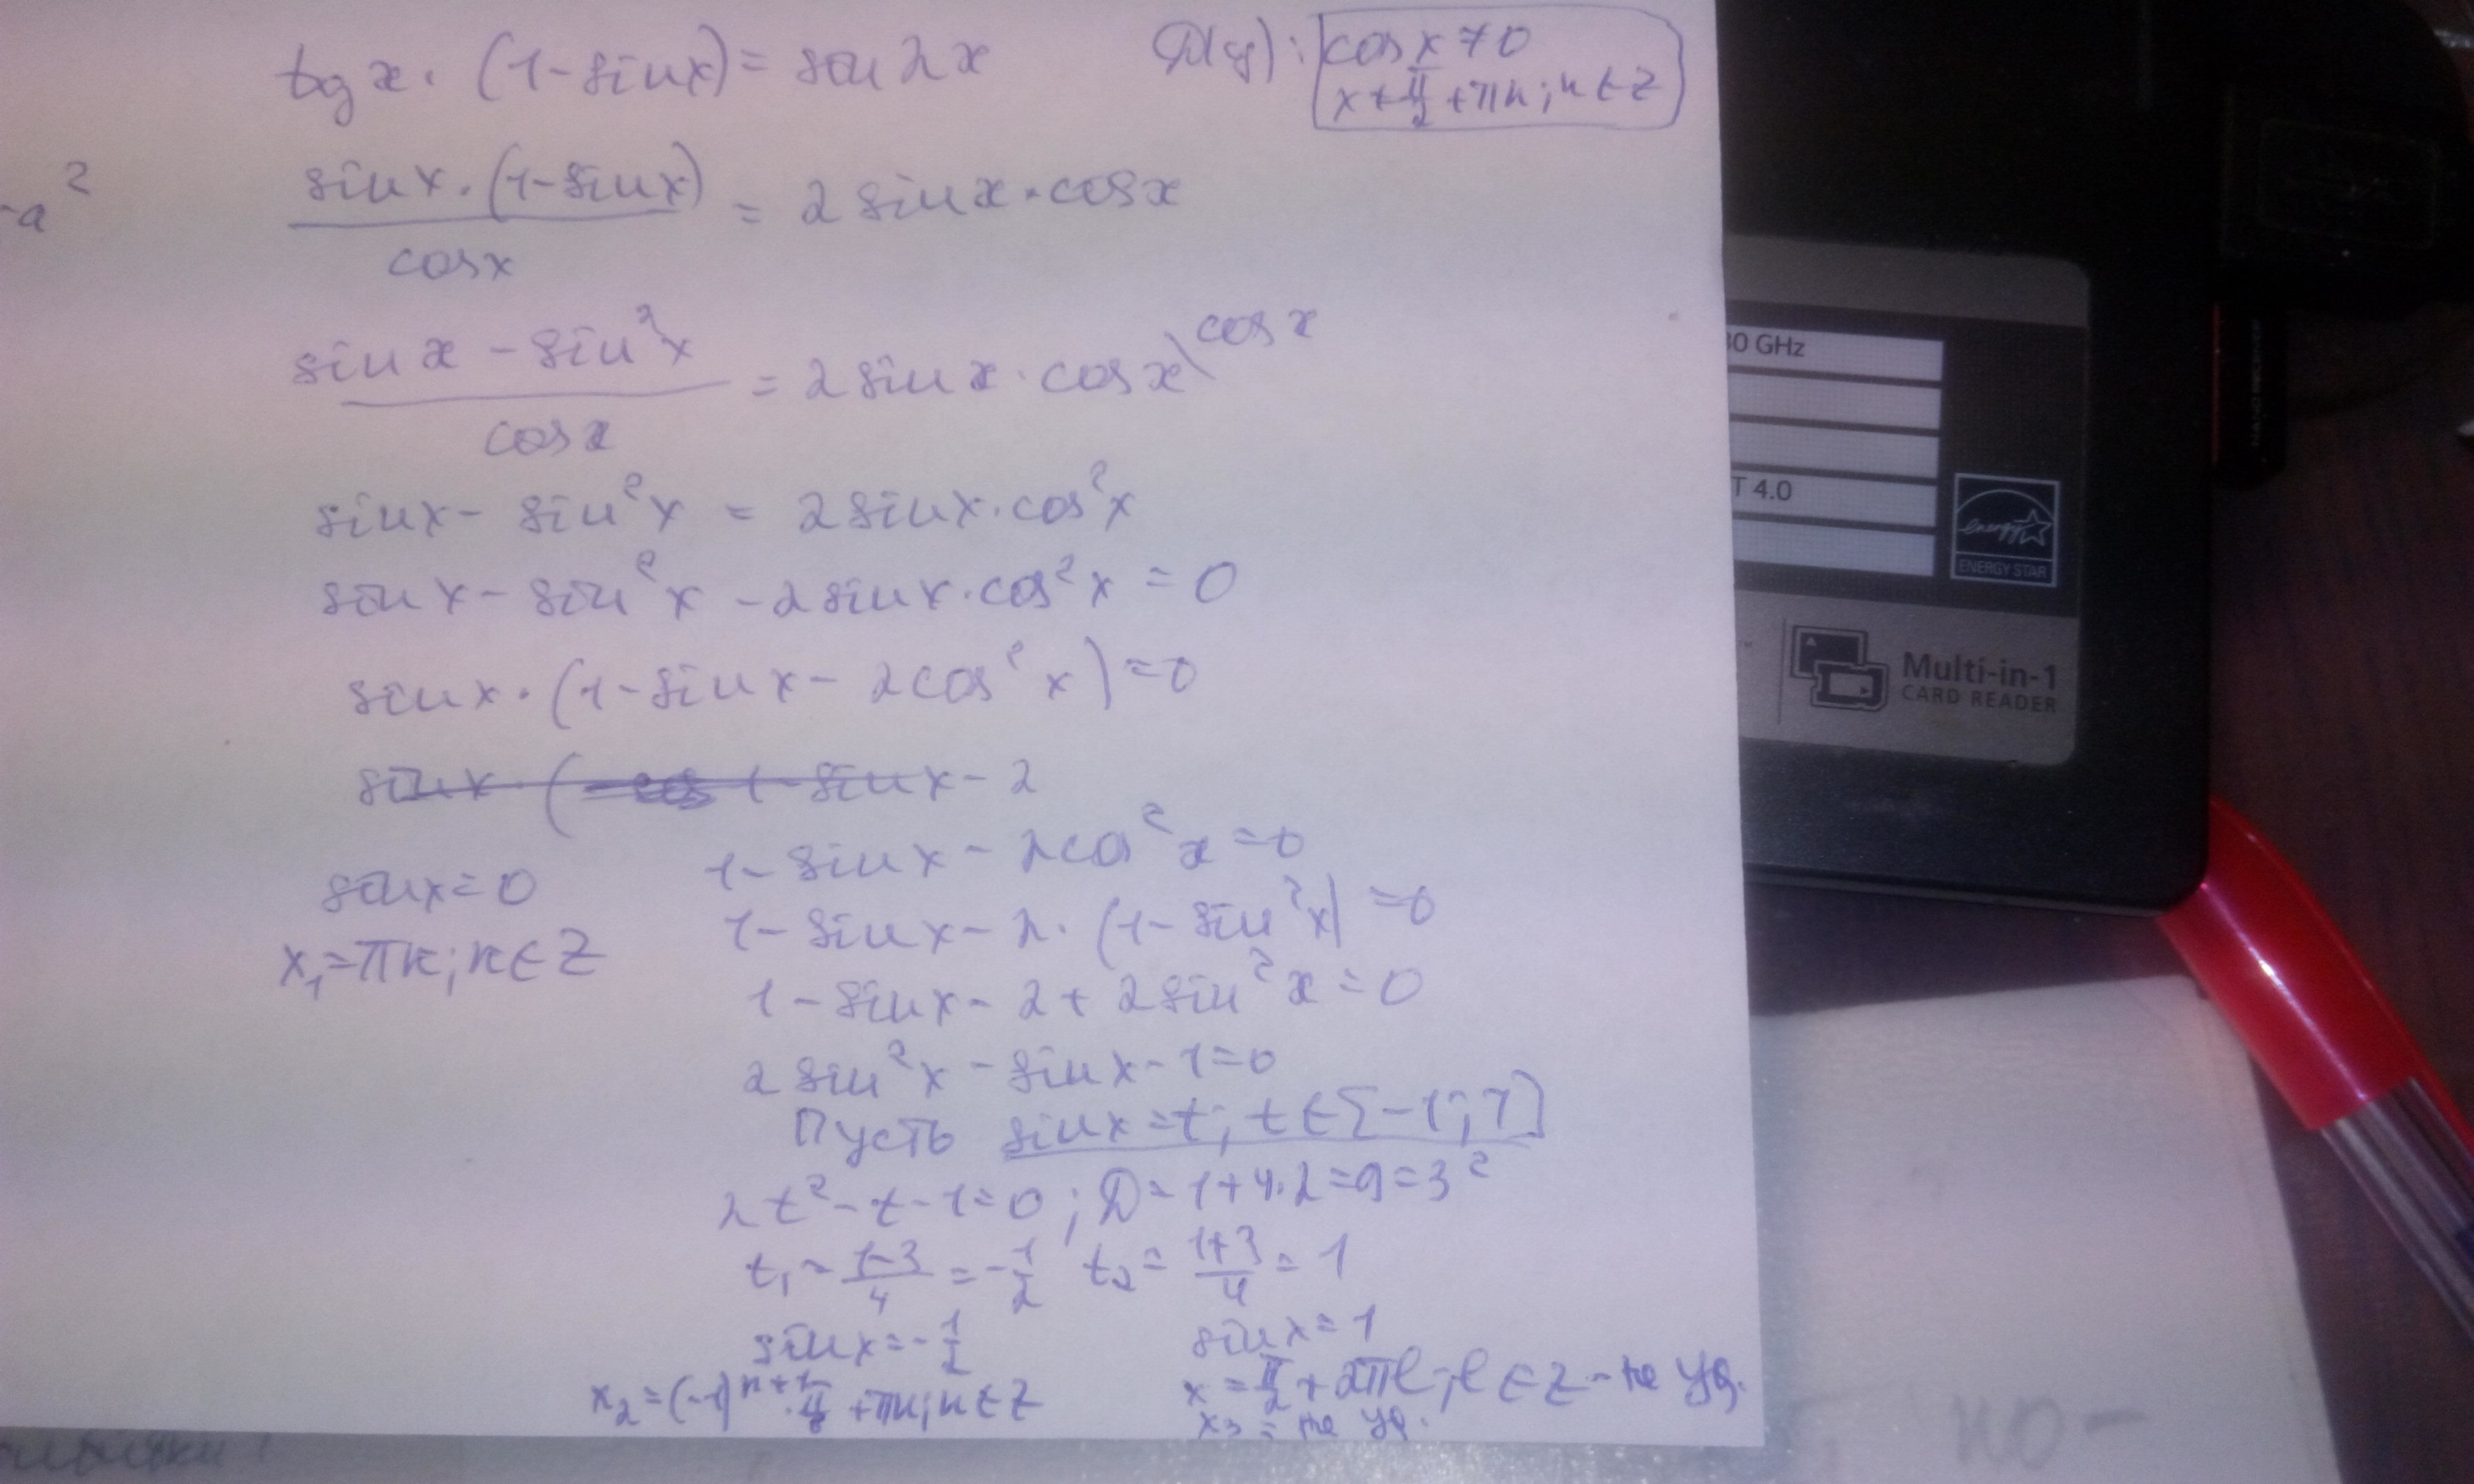 tg x · (1 - sin x) = sin 2x
D(y): cos x ≠ 0
x ≠ π/2 + πn; n ∈ Z
-a²
sin x · (1 - sin x) / cos x = 2 sin x · cos x
(sin x - sin² x) / cos x = 2 sin x · cos x \ cos x
sin x - sin² x = 2 sin x · cos² x
sin x - sin² x - 2 sin x · cos² x = 0
sin x · (1 - sin x - 2cos² x) = 0
sin x · ( 1 - sin x - 2
sin x = 0
x₁ = πk; k ∈ Z
1 - sin x - 2cos² x = 0
1 - sin x - 2 · (1 - sin² x) = 0
1 - sin x - 2 + 2 sin² x = 0
2 sin² x - sin x - 1 = 0
Пусть sin x = t; t ∈ [-1; 1]
2t² - t - 1 = 0; D = 1 + 4·2 = 9 = 3²
t₁ = (1-3)/4 = -1/2 t₂ = (1+3)/4 = 1
sin x = -1/2
x₂ = (-1)ⁿ⁺¹ · π/6 + πn; n ∈ Z
sin x = 1
x = π/2 + 2πl; l ∈ Z - не уд.
x₃ = не уд.
30 GHz
T 4.0
energy
ENERGY STAR
Multi-in-1
CARD READER
но-